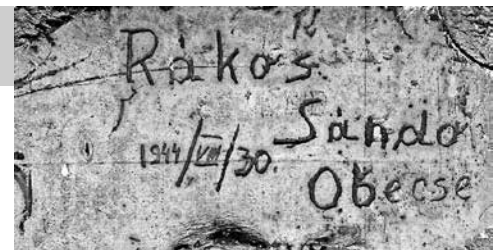 Rákos
Sándo
1944/VIII/30.
Obecse